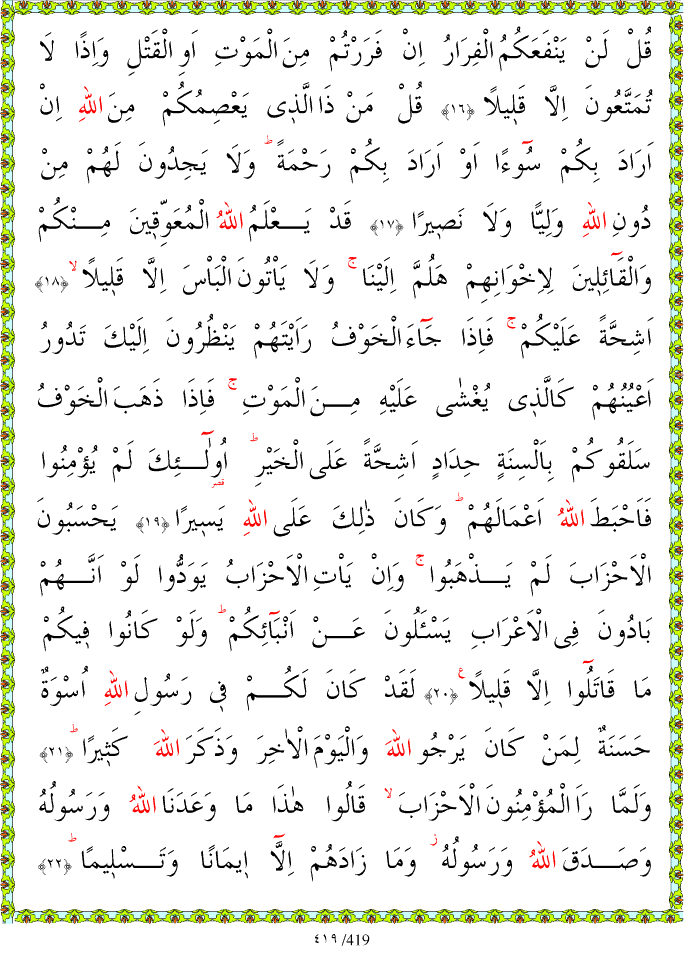 قُلْ لَنْ يَنْفَعَكُمُ الْفِرَارُ اِنْ فَرَرْتُمْ مِنَ الْمَوْتِ اَوِ الْقَتْلِ وَاِذًا لَا
تُمَتَّعُونَ اِلَّا قَلٖيلًا ﴿١٦﴾ قُلْ مَنْ ذَا الَّذٖى يَعْصِمُكُمْ مِنَ اللّٰهِ اِنْ
اَرَادَ بِكُمْ سُٓوءًا اَوْ اَرَادَ بِكُمْ رَحْمَةًؕ وَلَا يَجِدُونَ لَهُمْ مِنْ
دُونِ اللّٰهِ وَلِيًّا وَلَا نَصٖيرًا ﴿١٧﴾ قَدْ يَعْلَمُ اللّٰهُ الْمُعَوِّقٖينَ مِنْكُمْ
وَالْقَٓائِلٖينَ لِاِخْوَانِهِمْ هَلُمَّ اِلَيْنَاۚ وَلَا يَاْتُونَ الْبَاْسَ اِلَّا قَلٖيلًاۙ ﴿١٨﴾
اَشِحَّةً عَلَيْكُمْۚ فَاِذَا جَٓاءَ الْخَوْفُ رَاَيْتَهُمْ يَنْظُرُونَ اِلَيْكَ تَدُورُ
اَعْيُنُهُمْ كَالَّذٖى يُغْشٰى عَلَيْهِ مِنَ الْمَوْتِۚ فَاِذَا ذَهَبَ الْخَوْفُ
سَلَقُوكُمْ بِاَلْسِنَةٍ حِدَادٍ اَشِحَّةً عَلَى الْخَيْرِؕ اُو۬لٰٓئِكَ لَمْ يُؤْمِنُوا
فَاَحْبَطَ اللّٰهُ اَعْمَالَهُمْؕ وَكَانَ ذٰلِكَ عَلَى اللّٰهِ يَسٖيرًا ﴿١٩﴾ يَحْسَبُونَ
الْاَحْزَابَ لَمْ يَذْهَبُواۚ وَاِنْ يَاْتِ الْاَحْزَابُ يَوَدُّوا لَوْ اَنَّهُمْ
بَادُونَ فِى الْاَعْرَابِ يَسْئَلُونَ عَنْ اَنْبَٓائِكُمْؕ وَلَوْ كَانُوا فٖيكُمْ
مَا قَاتَلُٓوا اِلَّا قَلٖيلًاࣖ ﴿٢٠﴾ لَقَدْ كَانَ لَكُمْ فٖى رَسُولِ اللّٰهِ اُسْوَةٌ
حَسَنَةٌ لِمَنْ كَانَ يَرْجُو اللّٰهَ وَالْيَوْمَ الْاٰخِرَ وَذَكَرَ اللّٰهَ كَثٖيرًاؕ ﴿٢١﴾
وَلَمَّا رَاَ الْمُؤْمِنُونَ الْاَحْزَابَۙ قَالُوا هٰذَا مَا وَعَدَنَا اللّٰهُ وَرَسُولُهُ
وَصَدَقَ اللّٰهُ وَرَسُولُهُؗ وَمَا زَادَهُمْ اِلَّٓا اٖيمَانًا وَتَسْلٖيمًاؕ ﴿٢٢﴾
٤١٩ /419